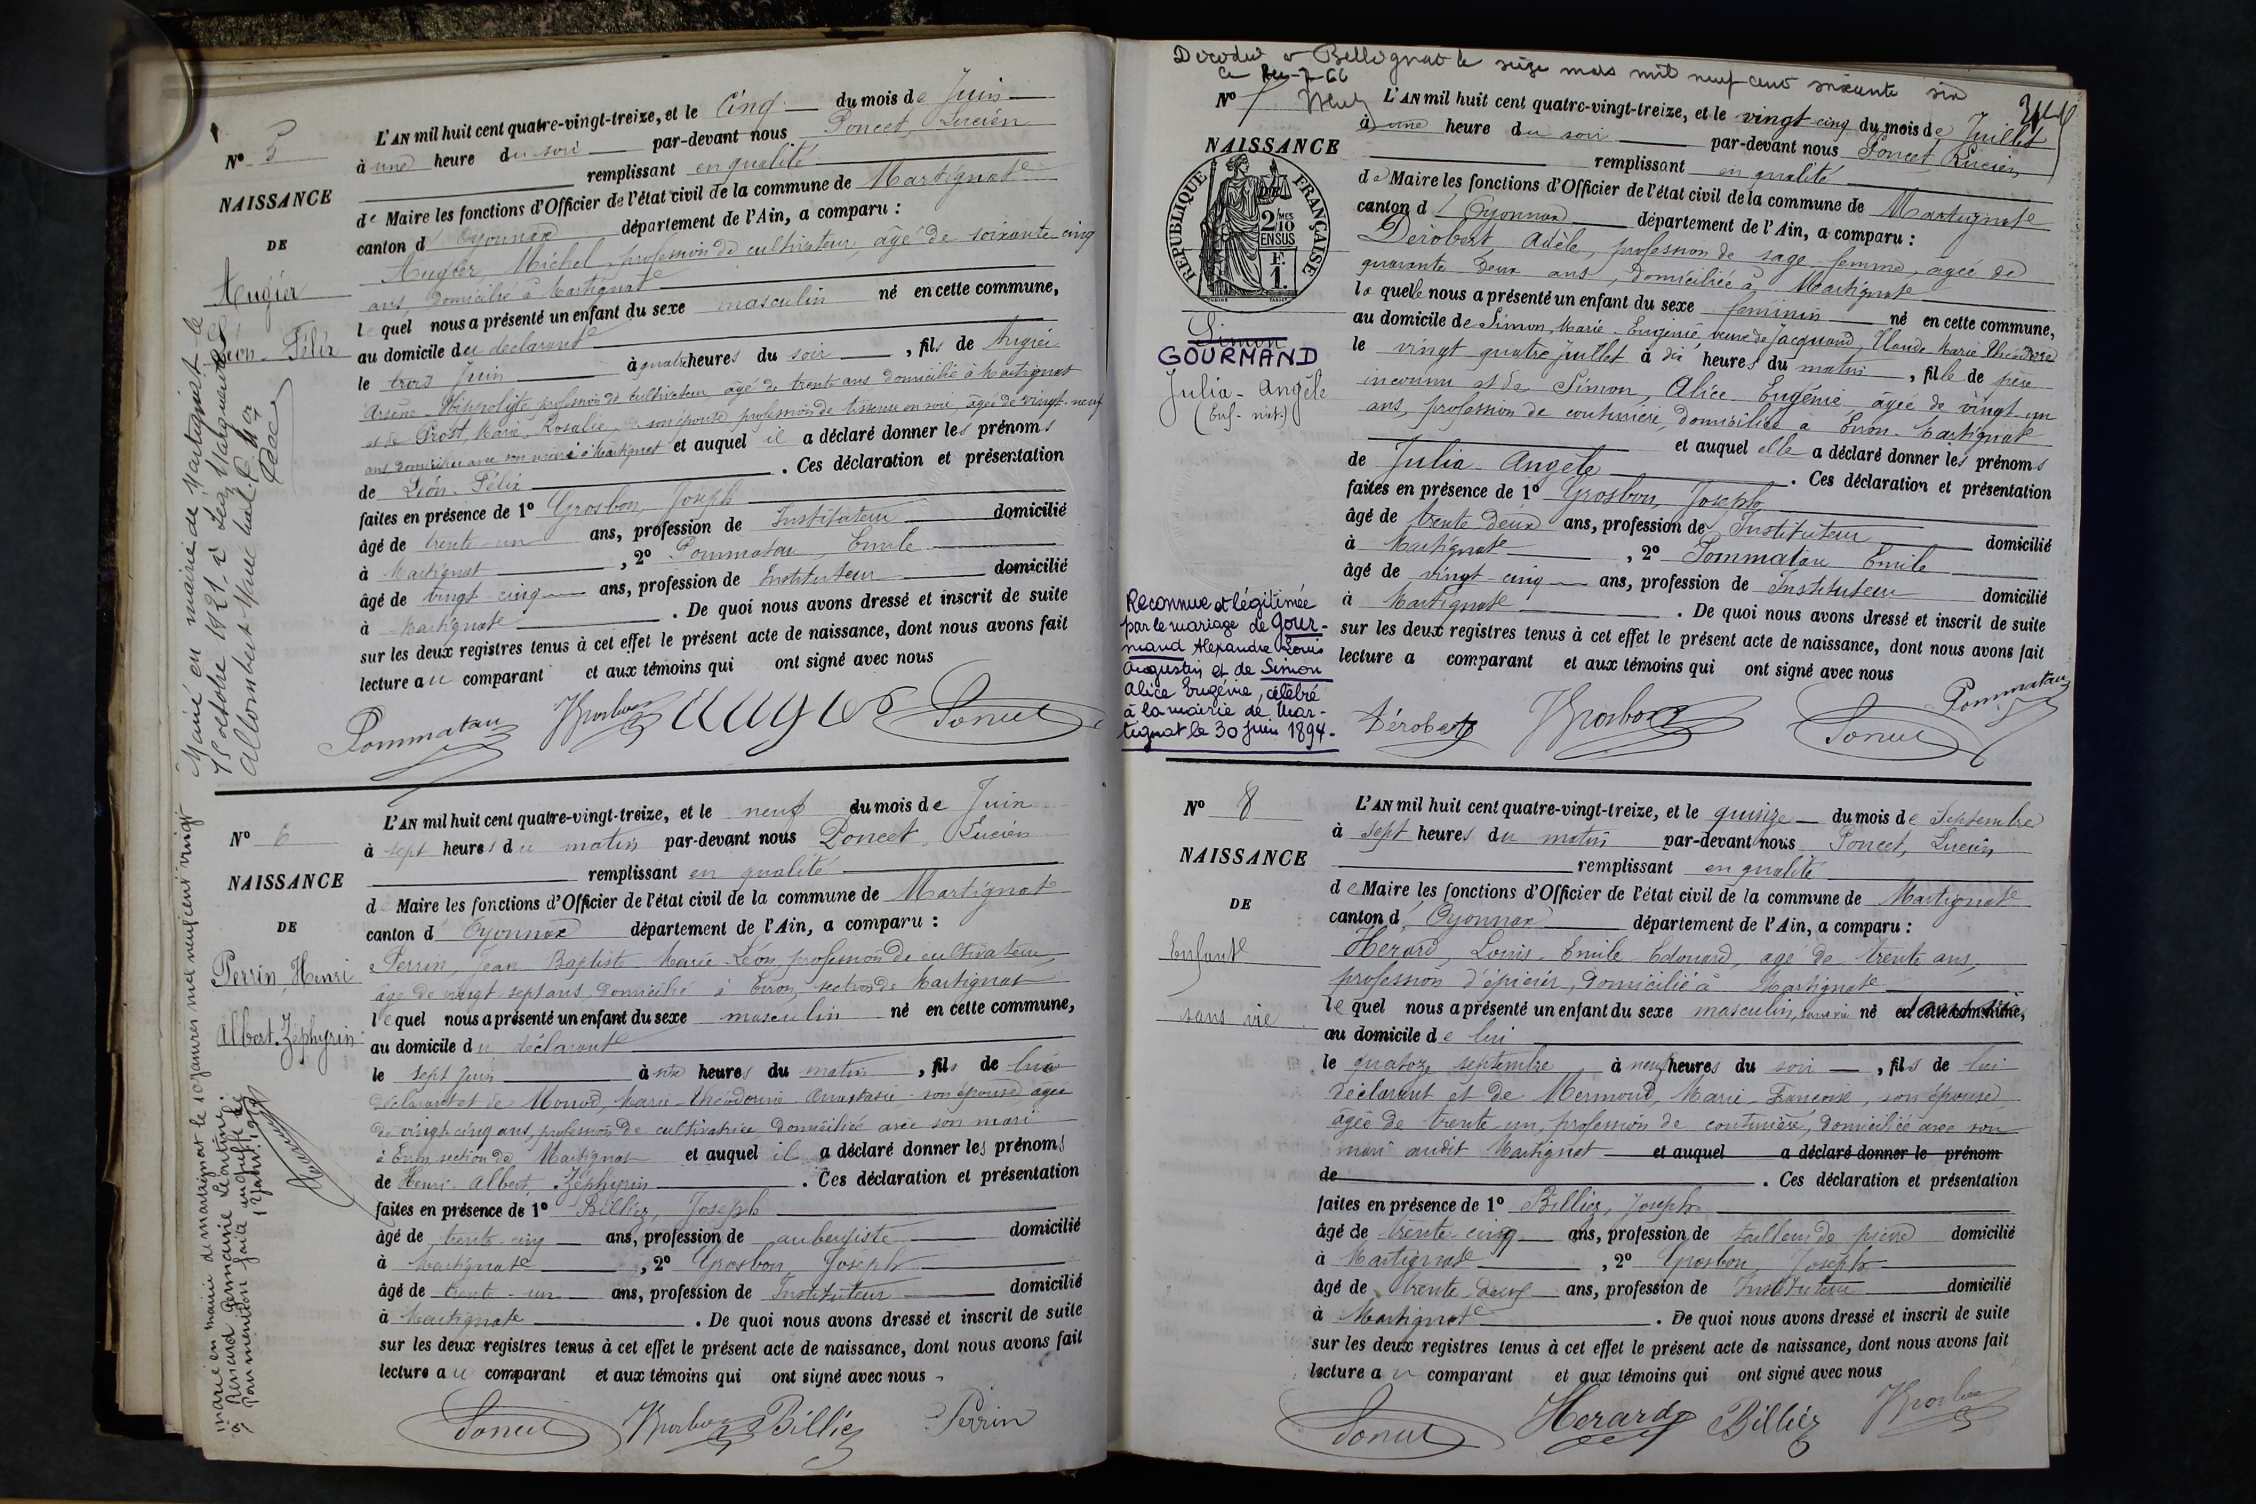 N° 5
NAISSANCE
DE
Augier
Léon-Félix
Marié en mairie de Martignat le
15 octobre 1921 à
Allombert Marie
L'AN mil huit cent quatre-vingt-treize, et le cinq du mois de Juin
à une heure du soir par-devant nous Poncet, Lucien
remplissant en qualité
de Maire les fonctions d'Officier de l'état civil de la commune de Martignat
canton d'Oyonnax département de l'Ain, a comparu :
Augier, Michel, profession de cultivateur, âgé de soixante-cinq
ans, domicilié à Martignat
lequel nous a présenté un enfant du sexe masculin né en cette commune,
au domicile du déclarant
le trois Juin à quatre heures du soir, fils de Augier
Arsène-Hippolyte, profession de cultivateur âgé de trente ans domicilié à Martignat
et de Prost, Marie, Rosalie, son épouse, profession de tisseuse en soie, âgée de vingt-neuf
ans domiciliée avec son mari à Martignat et auquel il a déclaré donner les prénoms
de Léon-Félix. Ces déclaration et présentation
faites en présence de 1° Grosbon, Joseph
âgé de trente-un ans, profession de Instituteur domicilié
à Martignat, 2° Pommatau, Emile
âgé de vingt-cinq ans, profession de Instituteur domicilié
à Martignat. De quoi nous avons dressé et inscrit de suite
sur les deux registres tenus à cet effet le présent acte de naissance, dont nous avons fait
lecture au comparant et aux témoins qui ont signé avec nous
Pommatau Grosbon Augier Poncet
N° 6
NAISSANCE
DE
Perrin, Henri
Albert-Zéphyrin
Marié en mairie de Martignat le 10 janvier mil neuf cent vingt
à Renard Germaine Léontine.
Pour mention faite au greffe le
L'AN mil huit cent quatre-vingt-treize, et le neuf du mois de Juin
à sept heures du matin par-devant nous Poncet, Lucien
remplissant en qualité
de Maire les fonctions d'Officier de l'état civil de la commune de Martignat
canton d'Oyonnax département de l'Ain, a comparu :
Perrin, Jean Baptiste Marie Léon, profession de cultivateur,
âgé de vingt sept ans, domicilié à Evron, section de Martignat
lequel nous a présenté un enfant du sexe masculin né en cette commune,
au domicile du déclarant
le sept Juin à six heures du matin, fils de lui
déclarant et de Monod, Marie-Théodorine Anastasie son épouse âgée
de vingt cinq ans, profession de cultivatrice, domiciliée avec son mari
à Evron section de Martignat et auquel il a déclaré donner les prénoms
de Henri-Albert, Zéphyrin. Ces déclaration et présentation
faites en présence de 1° Billiez, Joseph
âgé de trente-cinq ans, profession de aubergiste domicilié
à Martignat, 2° Grosbon, Joseph
âgé de trente-un ans, profession de Instituteur domicilié
à Martignat. De quoi nous avons dressé et inscrit de suite
sur les deux registres tenus à cet effet le présent acte de naissance, dont nous avons fait
lecture au comparant et aux témoins qui ont signé avec nous
Poncet Grosbon Billiez Perrin
Décédée à Bellignat le seize mars mil neuf cent soixante six
N° 7
NAISSANCE
RÉPUBLIQUE FRANÇAISE
2/10 MES
EN SUS
F.
1.
Simon
GOURMAND
Julia-Angèle
(Enf-nat.)
Reconnue et légitimée
par le mariage de Gour-
mand Alexandre Louis
Augustin et de Simon
Alice Eugénie, célébré
à la mairie de Mar-
tignat le 30 juin 1894.
L'AN mil huit cent quatre-vingt-treize, et le vingt cinq du mois de Juillet
à une heure du soir par-devant nous Poncet, Lucien
remplissant en qualité
de Maire les fonctions d'Officier de l'état civil de la commune de Martignat
canton d'Oyonnax département de l'Ain, a comparu :
Dérobert Adèle, profession de sage-femme, âgée de
quarante deux ans, domiciliée à Martignat
laquelle nous a présenté un enfant du sexe féminin né en cette commune,
au domicile de Simon, Marie-Eugénie, veuve de Jacquand, Claude Marie Théodore
le vingt quatre juillet à dix heures du matin, fille de père
inconnu et de Simon, Alice Eugénie âgée de vingt un
ans, profession de couturière, domiciliée à Evron-Martignat
et auquel elle a déclaré donner les prénoms
de Julia-Angèle. Ces déclaration et présentation
faites en présence de 1° Grosbon, Joseph
âgé de trente deux ans, profession de Instituteur domicilié
à Martignat, 2° Pommatau Emile
âgé de vingt-cinq ans, profession de Instituteur domicilié
à Martignat. De quoi nous avons dressé et inscrit de suite
sur les deux registres tenus à cet effet le présent acte de naissance, dont nous avons fait
lecture a comparant et aux témoins qui ont signé avec nous
Dérobert Grosbon Poncet Pommatau
N° 8
NAISSANCE
DE
Enfant
sans vie
L'AN mil huit cent quatre-vingt-treize, et le quinze du mois de Septembre
à sept heures du matin par-devant nous Poncet, Lucien
remplissant en qualité
de Maire les fonctions d'Officier de l'état civil de la commune de Martignat
canton d'Oyonnax département de l'Ain, a comparu :
Herard, Louis-Emile-Edouard, âgé de trente ans,
profession d'épicier, domicilié à Martignat
lequel nous a présenté un enfant du sexe masculin, sans vie né en cette commune,
au domicile de lui
le quatorze septembre à neuf heures du soir, fils de lui
déclarant et de Mermoud, Marie-Françoise, son épouse
âgée de trente un, profession de couturière, domiciliée avec son
mari audit Martignat et auquel a déclaré donner le prénom
de. Ces déclaration et présentation
faites en présence de 1° Billiez, Joseph
âgé de trente-cinq ans, profession de tailleur de pierre domicilié
à Martignat, 2° Grosbon, Joseph
âgé de trente-deux ans, profession de Instituteur domicilié
à Martignat. De quoi nous avons dressé et inscrit de suite
sur les deux registres tenus à cet effet le présent acte de naissance, dont nous avons fait
lecture au comparant et aux témoins qui ont signé avec nous
Poncet Herard Billiez Grosbon